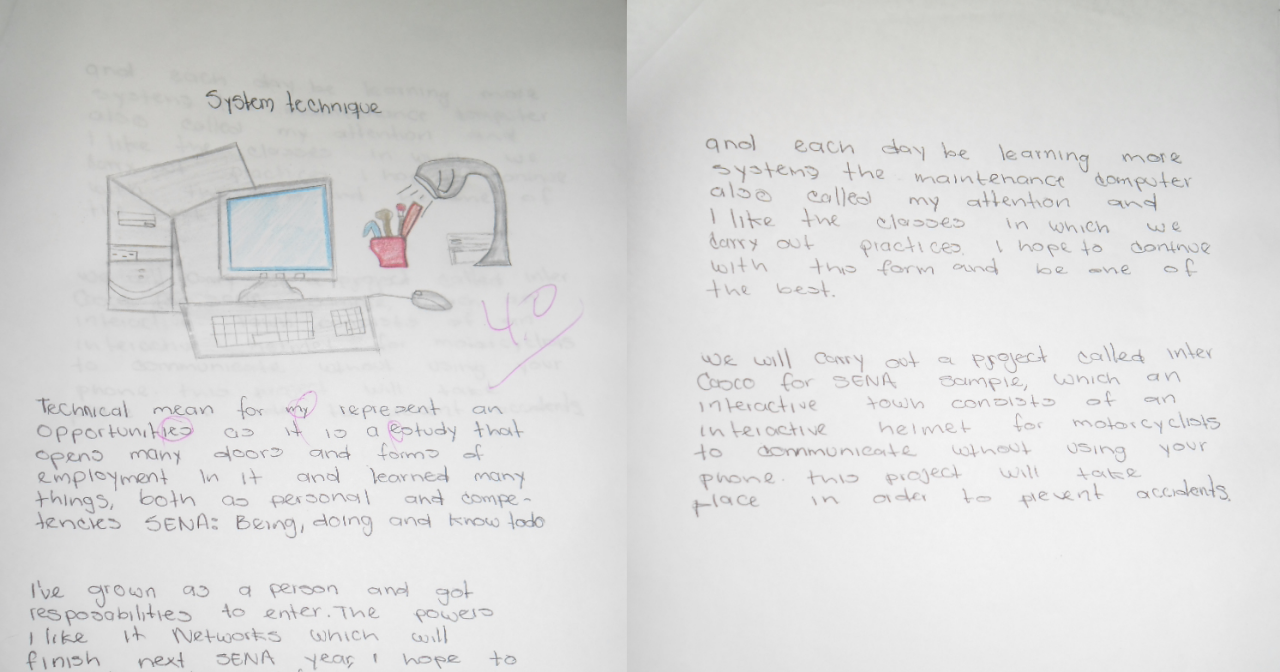 System technique
4.0
Technical mean for my represent an
opportunities as it is a estudy that
opens many doors and forms of
employment In it and learned many
things, both as personal and compe-
tencies SENA: Being, doing and know todo
I've grown as a person and got
resposabilities to enter. The powers
I like it Networks which will
finish next SENA year, I hope to
and each day be learning more
systems the maintenance computer
also called my attention and
I like the classes in which we
carry out practices. I hope to continue
with this form and be one of
the best.
We will carry out a project called inter
Casco for SENA sample, which an
interactive town consists of an
interactive helmet for motorcyclists
to communicate without using your
phone. this project will take
place in order to prevent accidents.